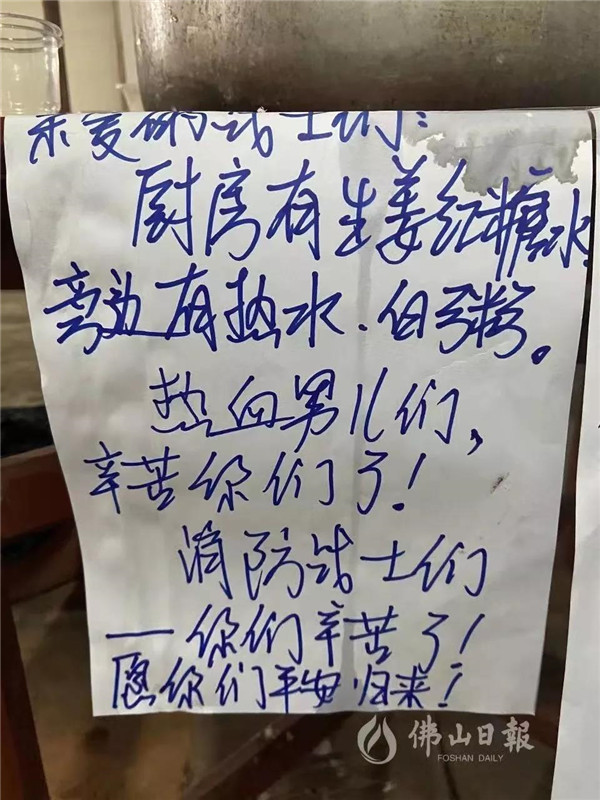 亲爱的战士们:
厨房有生姜红糖水
旁边有热水、白粥。
热血男儿们,
辛苦你们了!
消防战士们
——你们辛苦了!
愿你们平安归来!
佛山日報
FOSHAN DAILY